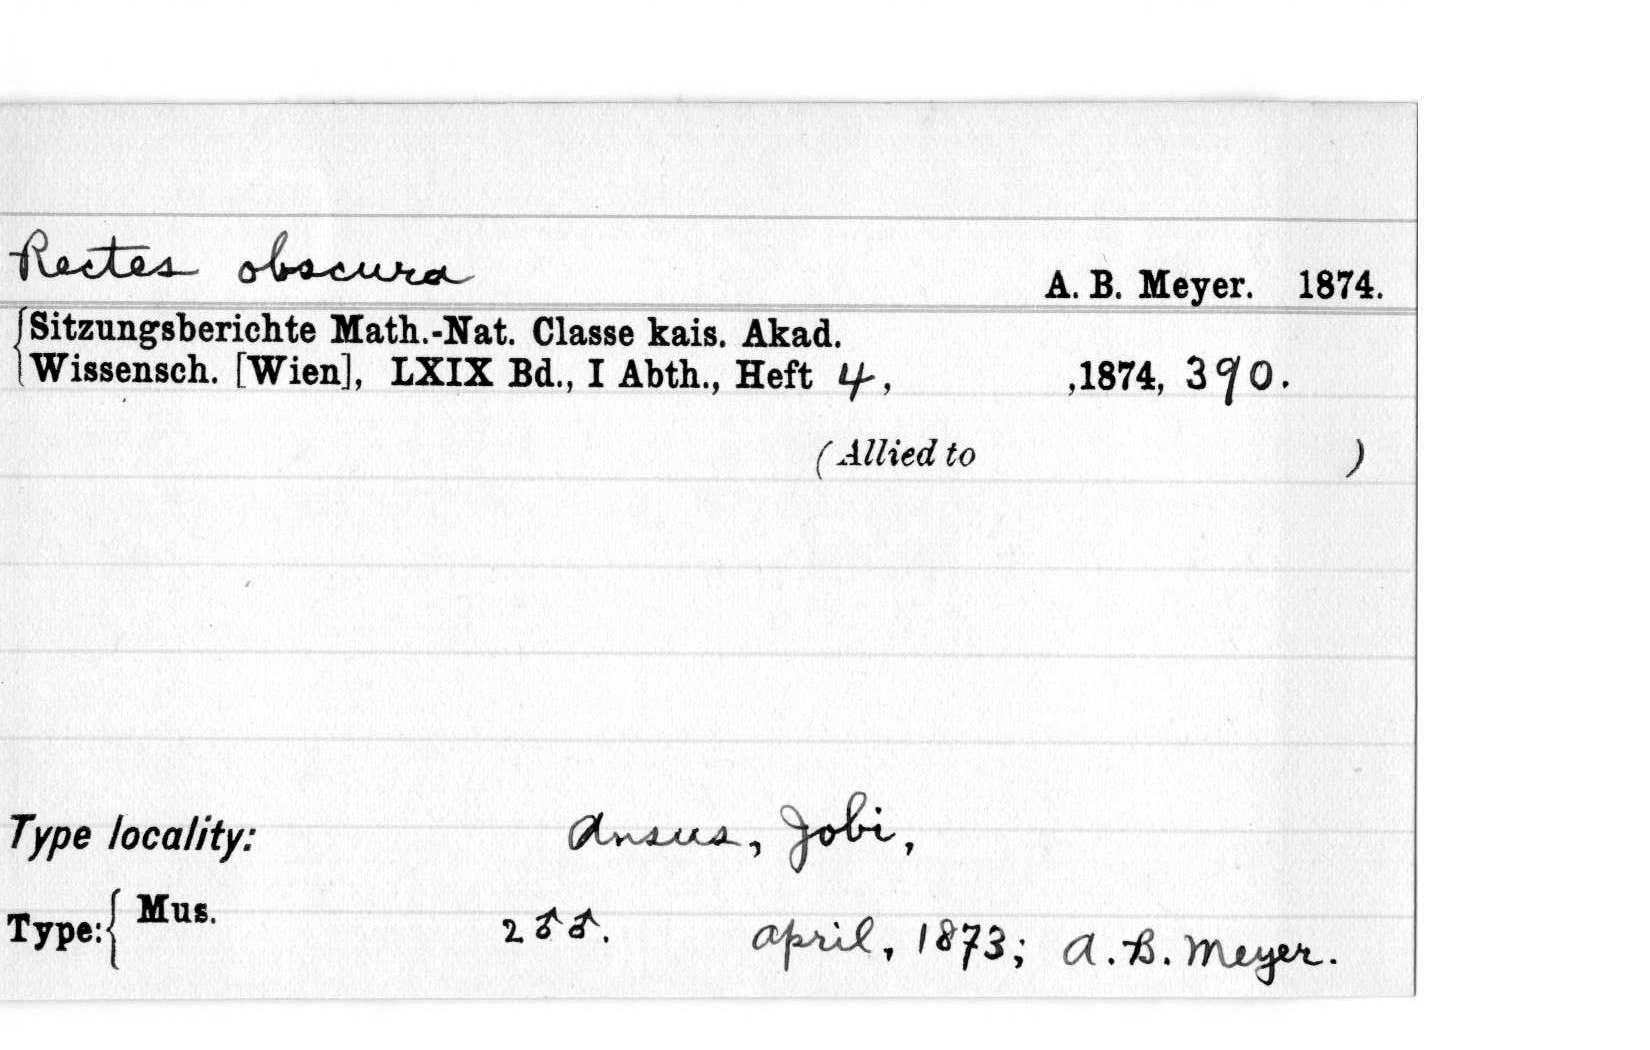 Rectes obscura A. B. Meyer. 1874.
Sitzungsberichte Math.-Nat. Classe kais. Akad.
Wissensch. [Wien], LXIX Bd., I Abth., Heft 4, ,1874, 390.
(Allied to )
Type locality: Ansus, Jobi,
Type: { Mus. 2 ♂♂. April, 1873; A. B. Meyer.